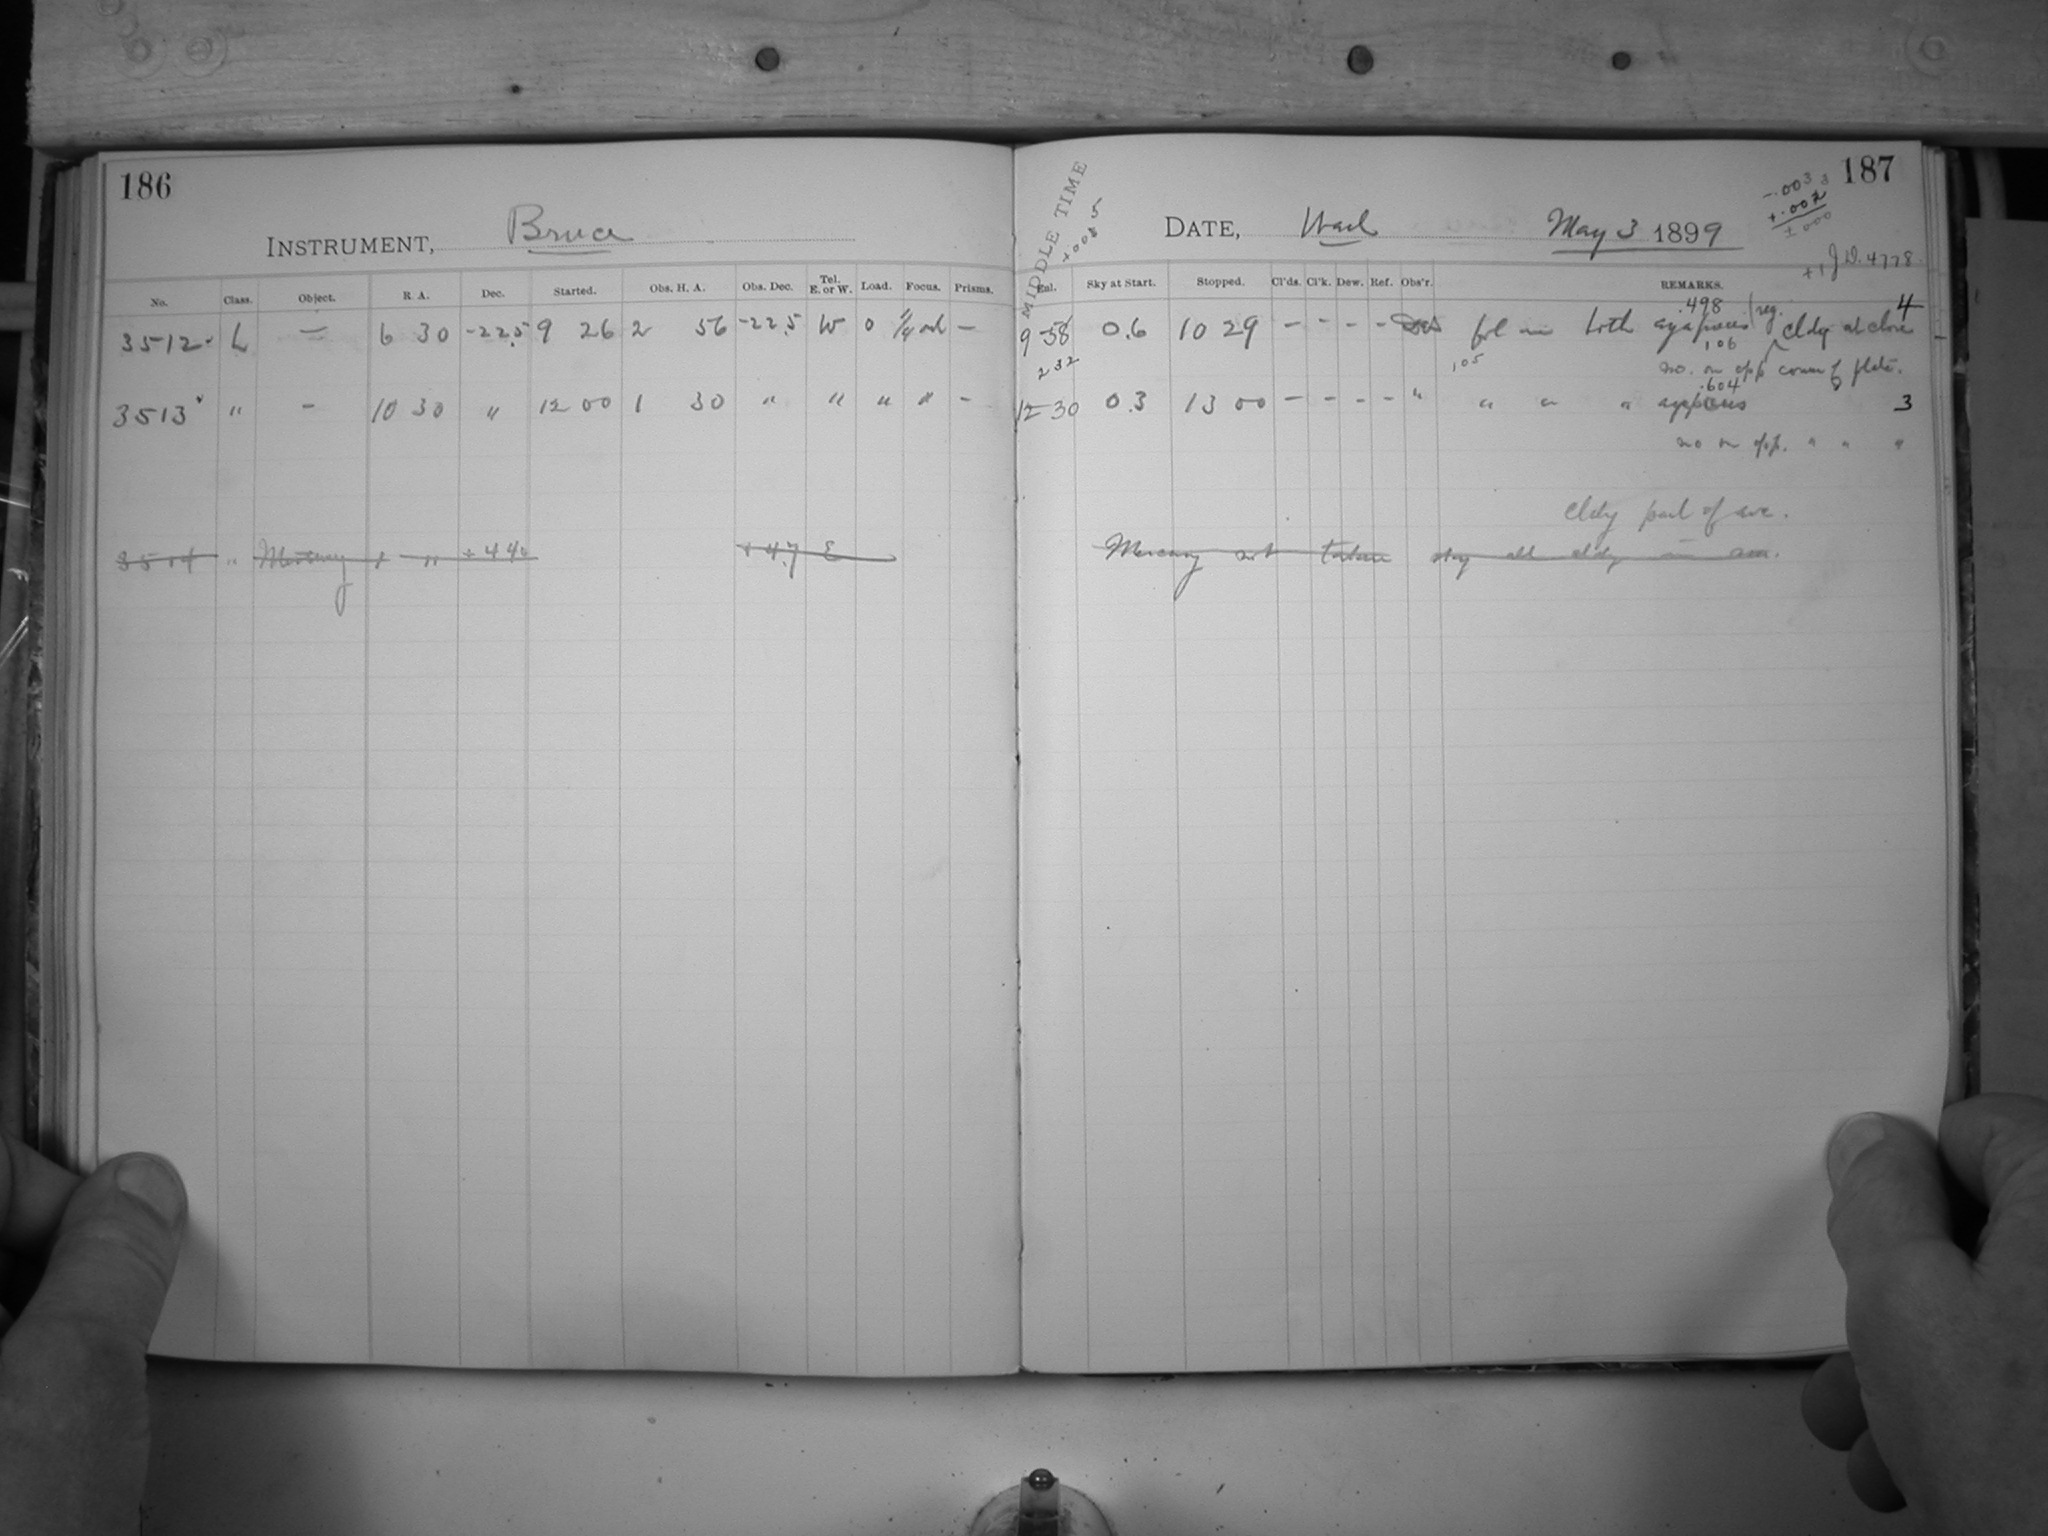 186
INSTRUMENT, Bruce
No. Class. Object. R. A. Dec. Started. Obs. H. A. Obs. Dec. Tel. E. or W. Load. Focus. Prisms.
3512 L — 6 30 -22.5 9 26 2 56 -22.5 W 0 —
3513 " — 10 30 " 12 00 1 30 " " " " —
3514 " Mercury 1 " +4 40 +4.7 E
187
MIDDLE TIME
+.008 5
DATE, Wed. May 3 1899
-.003 3
+.002
±000
+1 J.D. 4778
Enl. Sky at Start. Stopped. Cl'ds. Cl'k. Dew. Ref. Obs'r. REMARKS.
.498 reg. 4
9 58 0.6 10 29 — — — — fol in both cldy at close
232 .105 106 no. on opp corner of plate.
.604
12 30 0.3 13 00 — — — — " " " " 3
no on opp. " " "
Cldy part of eve.
Mercury not taken sky all cldy in am.